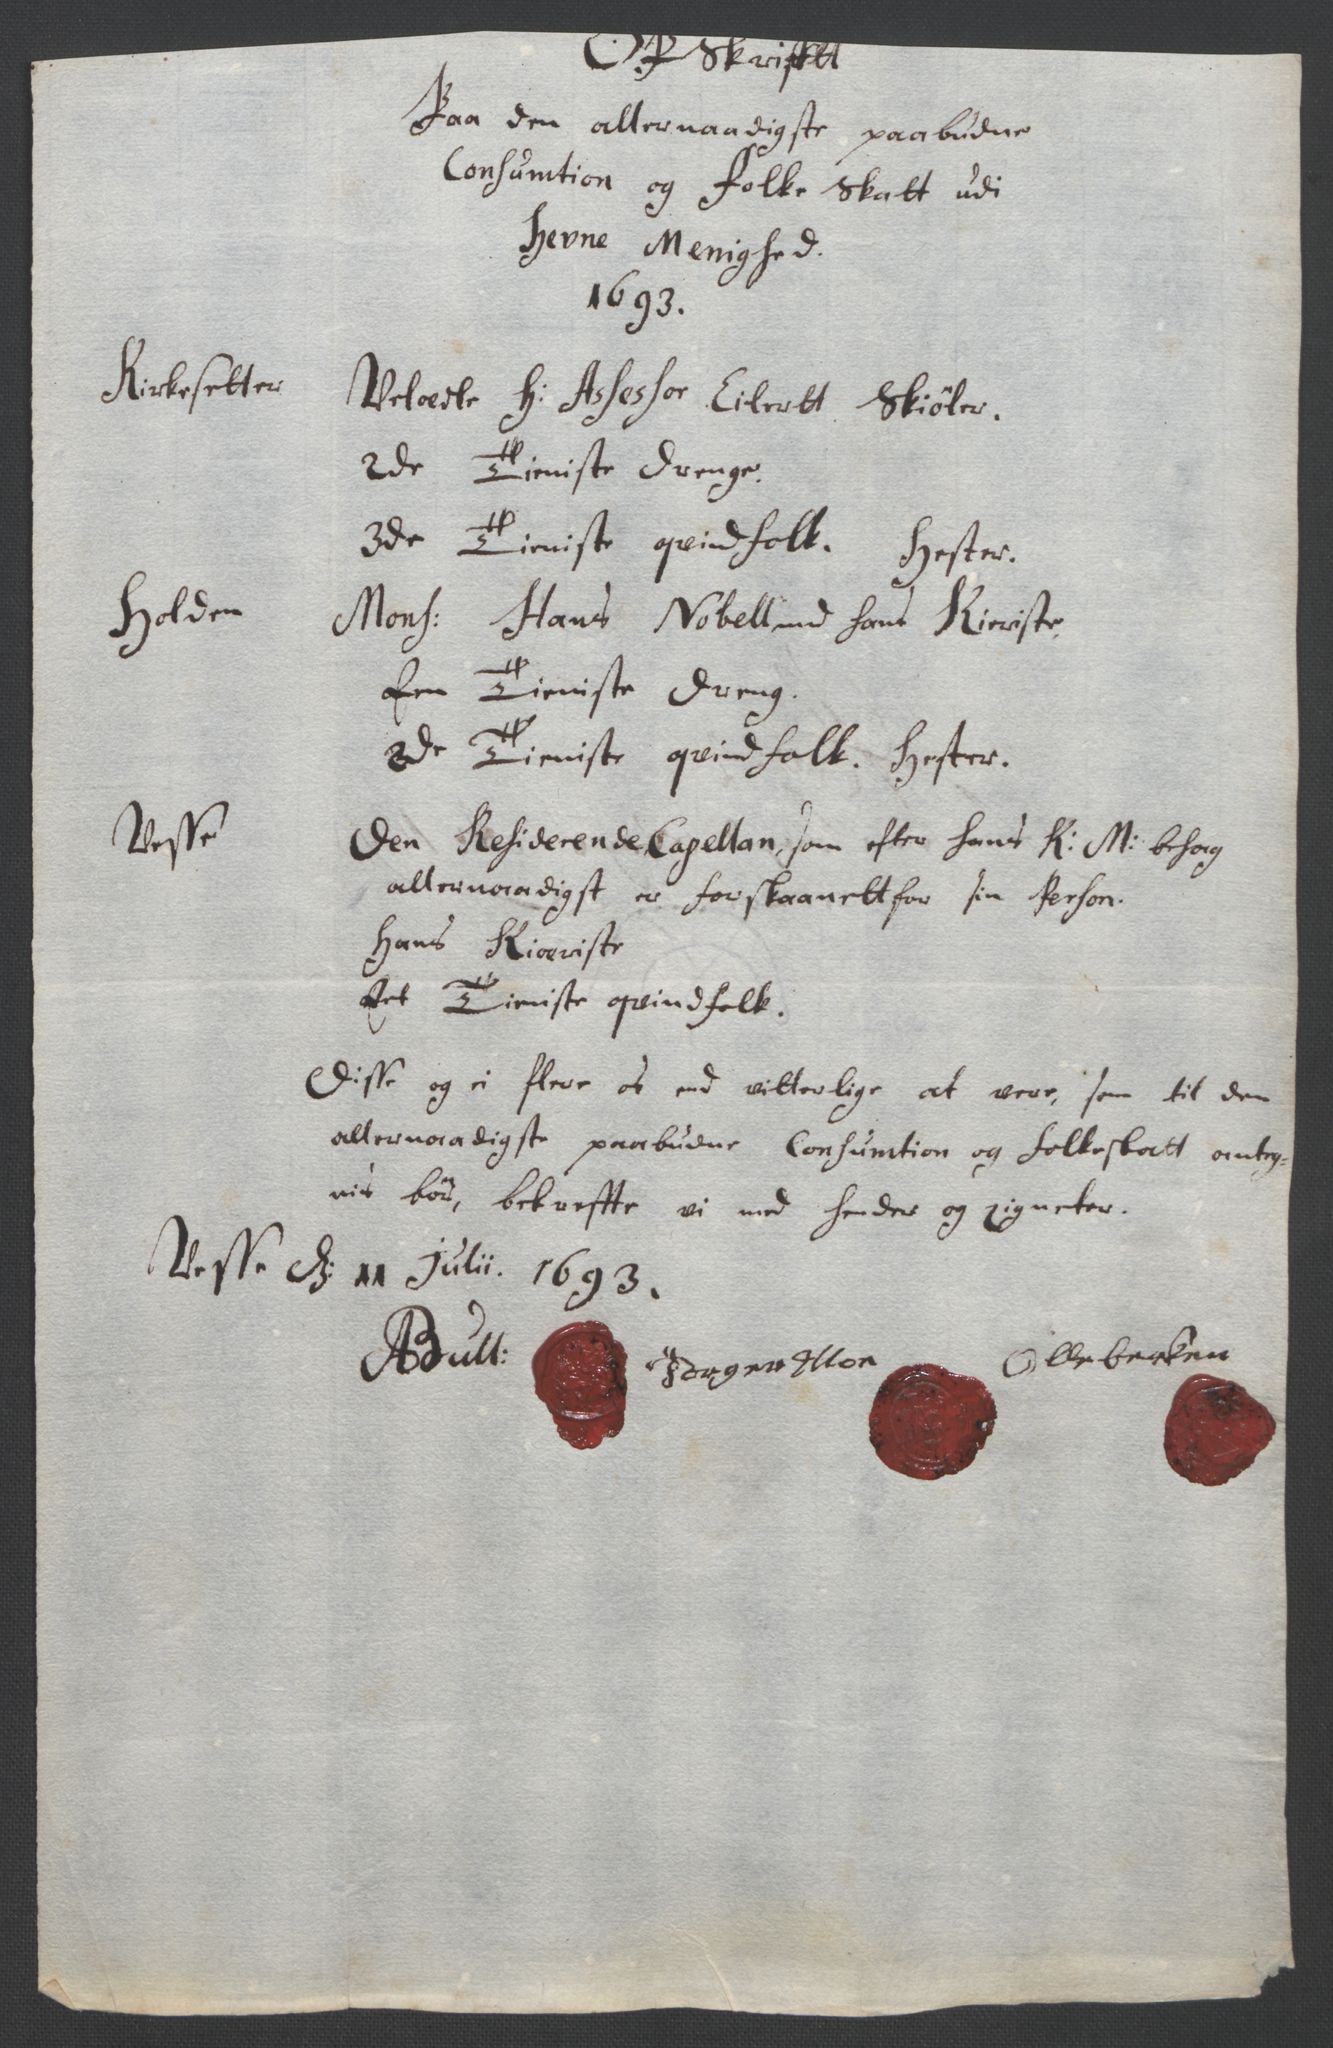 OpSkrifftt
Paa den allernaadigste paabudne
Consumtion og Folke Skatt udi
Hevne Menighed.
1693.
Kirkesetter Veloedle H: Assessor Eilertt Skiöler.
2de Tieniste Drenge.
3de Tieniste qvindfolk. Hester.
Holden Mons: Hans Nobell med hans Kieriste.
Een Tieniste Dreng.
2de Tieniste qvindfolk. Hester.
Vesse Den Residerende Capellan, som efter hans K: M: behag
allernaadigst er forskaanett for sin Person.
Hans Kieriste
Eet Tieniste qvindfolk.
Disse og ei flere os end vitterlige at vere, som til den
allernaadigste paabudne Consumtion og folkeskatt anteg-
nis bör, bekreffte vi med hender og zigneter.
Vesse d: 11 Julii. 1693.
ABull: Moe Olle berken